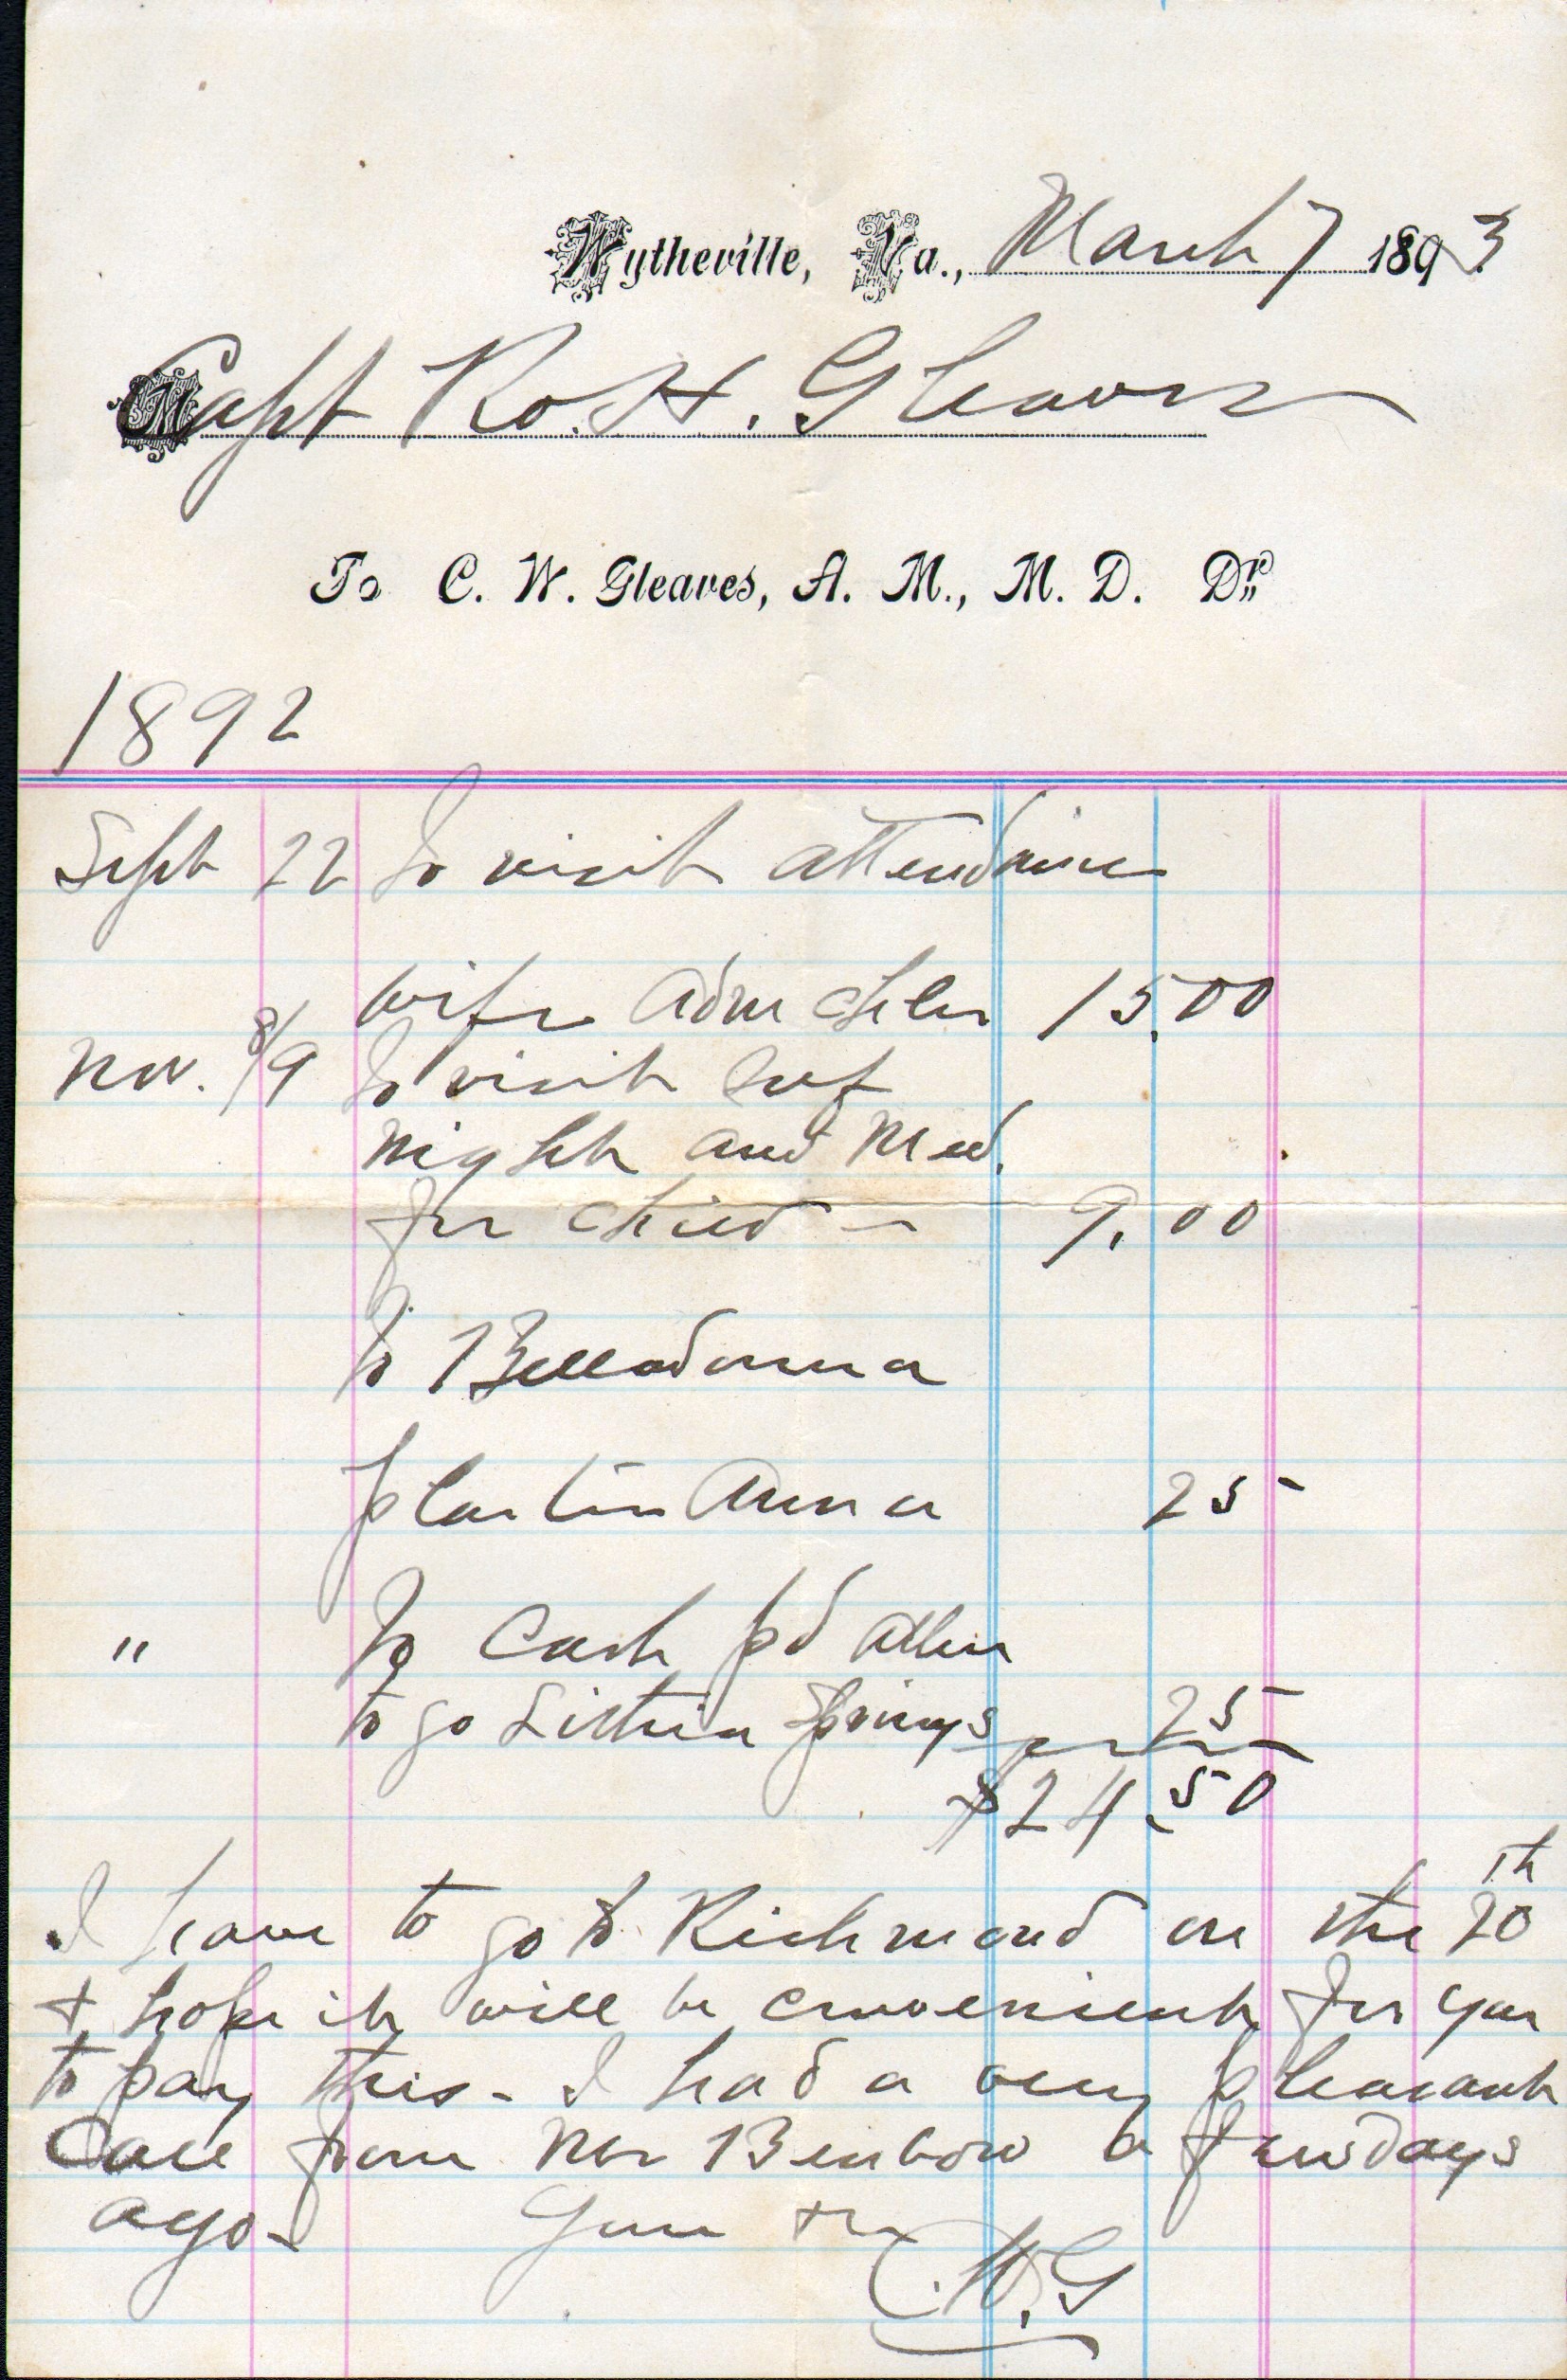 Wytheville, Va., March 7 1893
Capt Ro. H. Gleaves
To C. W. Gleaves, A. M., M. D. Dr.
1892
Sept 22 To visit attendance
wife Adm Chlor 15.00
Nov. 8/9 To visit
night and Med.
for child — 9.00
To Belladonna
plaster Anna 25
" To Cash pd Allen
to go Lithia Springs 25
$24.50
I have to go to Richmond on the 20th
+ hope it will be convenient for you
to pay this - I had a very pleasant
Call from Mr Benbow a few days
ago -
C.W.G